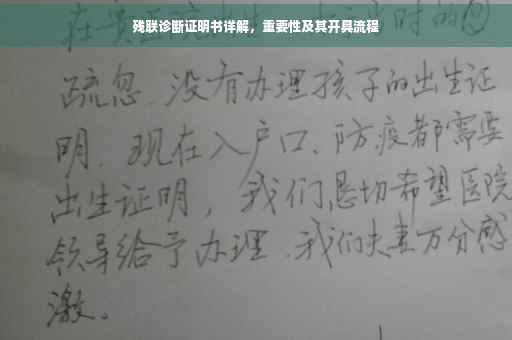 残联诊断证明书详解，重要性及其开具流程
时的
疏忽、没有办理孩子的出生证
明、现在入户口、防疫都需要
出生证明，我们恳切希望医院
领导给予办理、我们夫妻万分感
激。